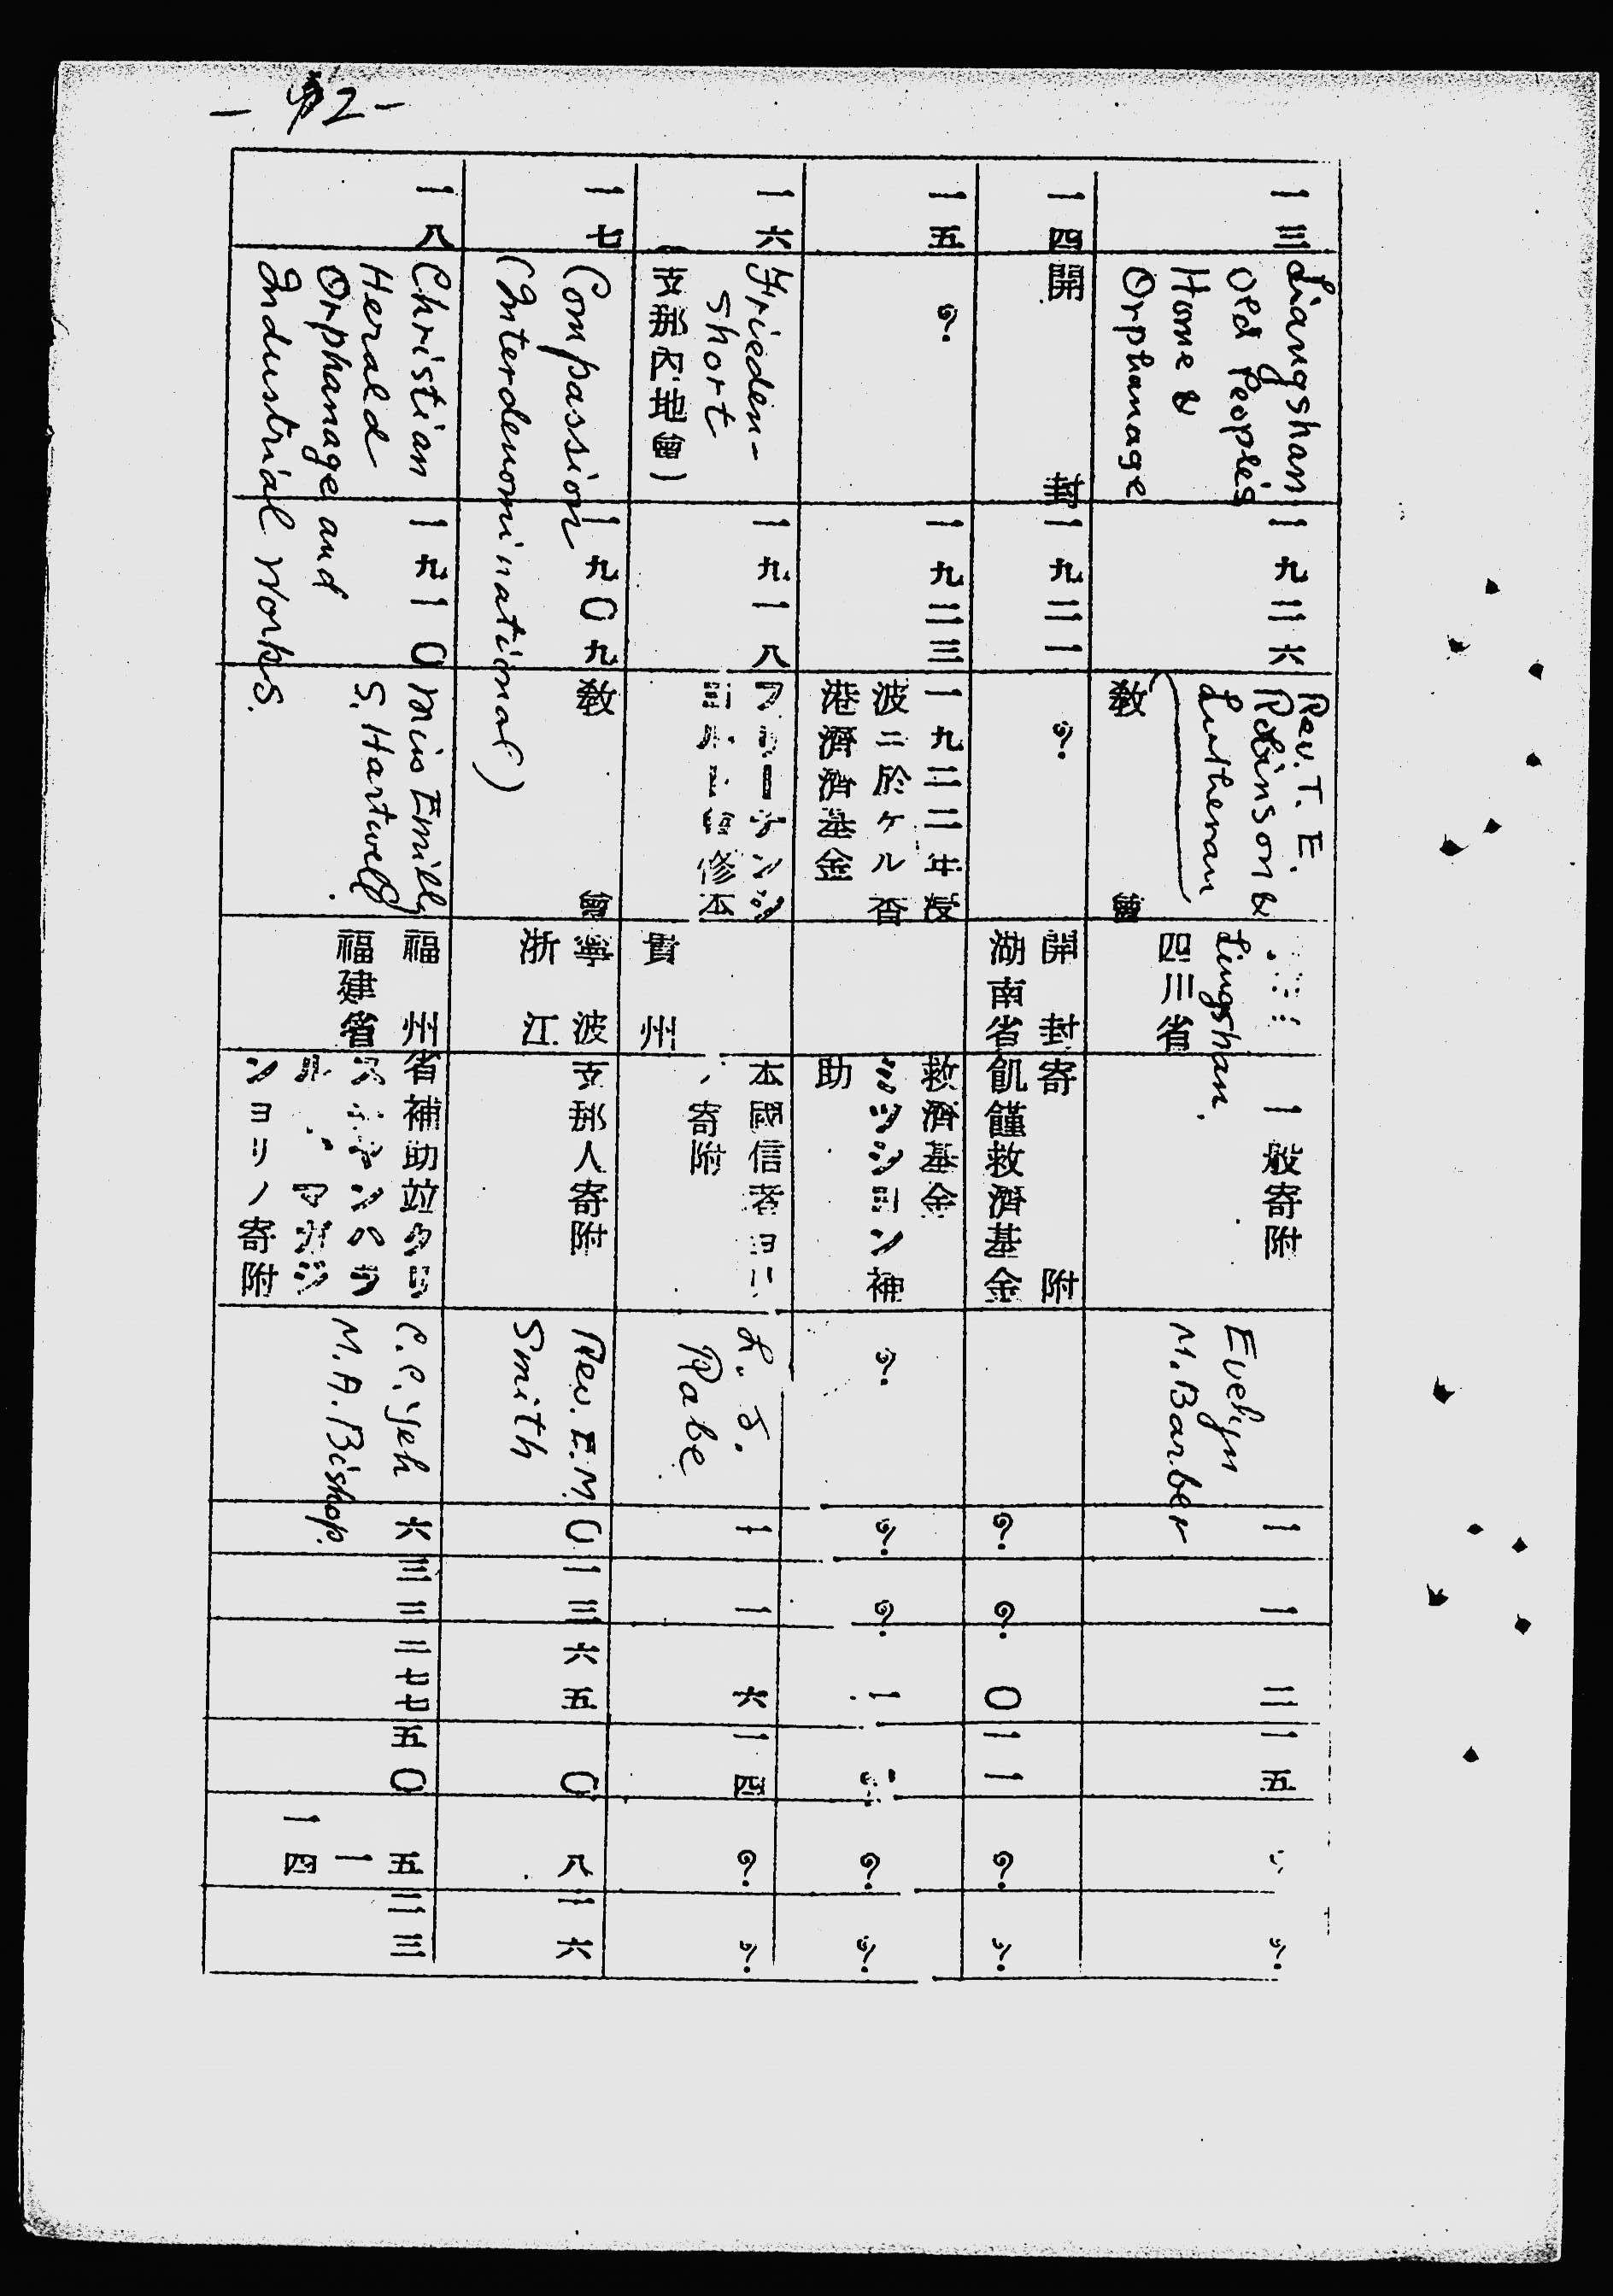 一三
Liangshan
Old People's
Home &
Orphanage
一九二六
Rev. T. E.
Robinson &
Lutheran
教會
Lingshan.
四川省
一般寄附
Evelyn
M. Barber
一
一
二
一五
?
一四
開封
一九二一
?
開封
湖南省
寄附
飢饉救濟基金
?
?
〇
一一
?
?
一五
?
一九二三
一九二二年
波ニ於ケル香
港濟濟基金
救濟基金
ミツシヨン補
助
?
?
?
一
?
?
一六
Frieden-
short
(支那內地會)
一九一八
フリーデンシ
ヨルト
修本
貴州
本國信者ヨリ
ノ寄附
L. J.
Rabe
一
一
六
一四
?
?
一七
Compassion
(Interdenominational)
一九〇九
教會
寧波
浙江
支那人寄附
Rev. E. M
Smith
〇
一三
六五
〇
八
一六
一八
Christian
Herald
Orphanage and
Industrial Works.
一九一〇
Miss Emily
S. Hartwell
福州
福建省
省補助竝クリ
スチヤンハラ
ルド、マガジ
ンヨリノ寄附
C. C. Yeh
M. A. Bishop.
六
三三
二七七
五〇
五
一
一四
二三